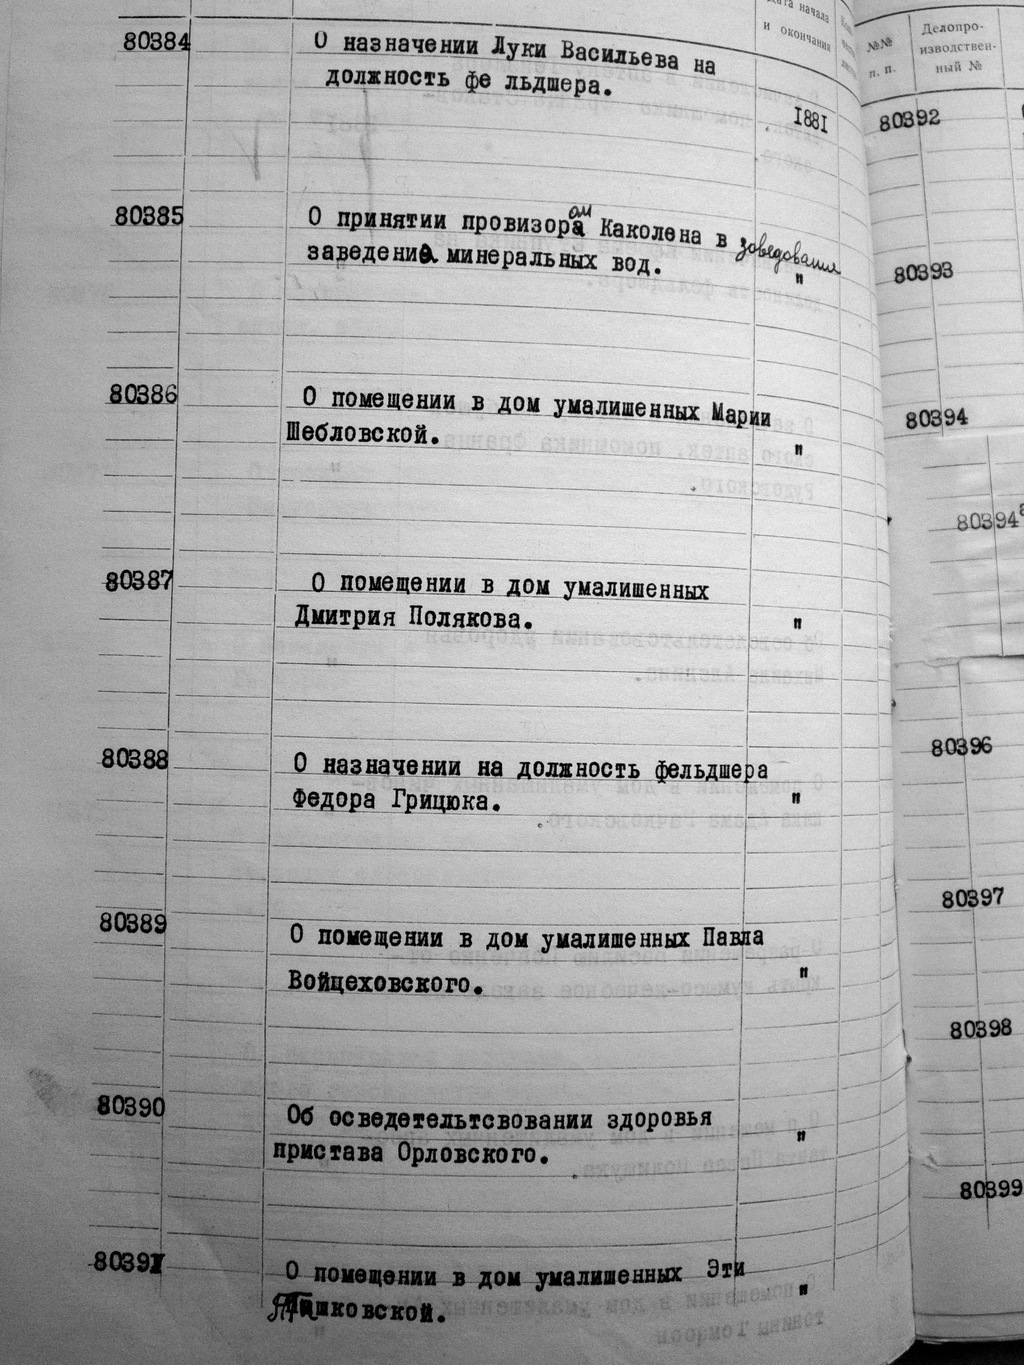 80384
О назначении Луки Васильева на
должность фе льдшера.
1881
80385
О принятии провизором Каколена в заведование
заведение минеральных вод.
"
80386
О помещении в дом умалишенных Марии
Шебловской.
"
80387
О помещении в дом умалишенных
Дмитрия Полякова.
"
80388
О назначении на должность фельдшера
Федора Грицюка.
"
80389
О помещении в дом умалишенных Павла
Войцеховского.
"
80390
Об осведетельтсвовании здоровья
пристава Орловского.
"
80391
О помещении в дом умалишенных Эти
"
дата начала
и окончания
№№
п. п.
Делопро-
изводствен-
ный №
80392
80393
80394
80394а
80396
80397
80398
80399